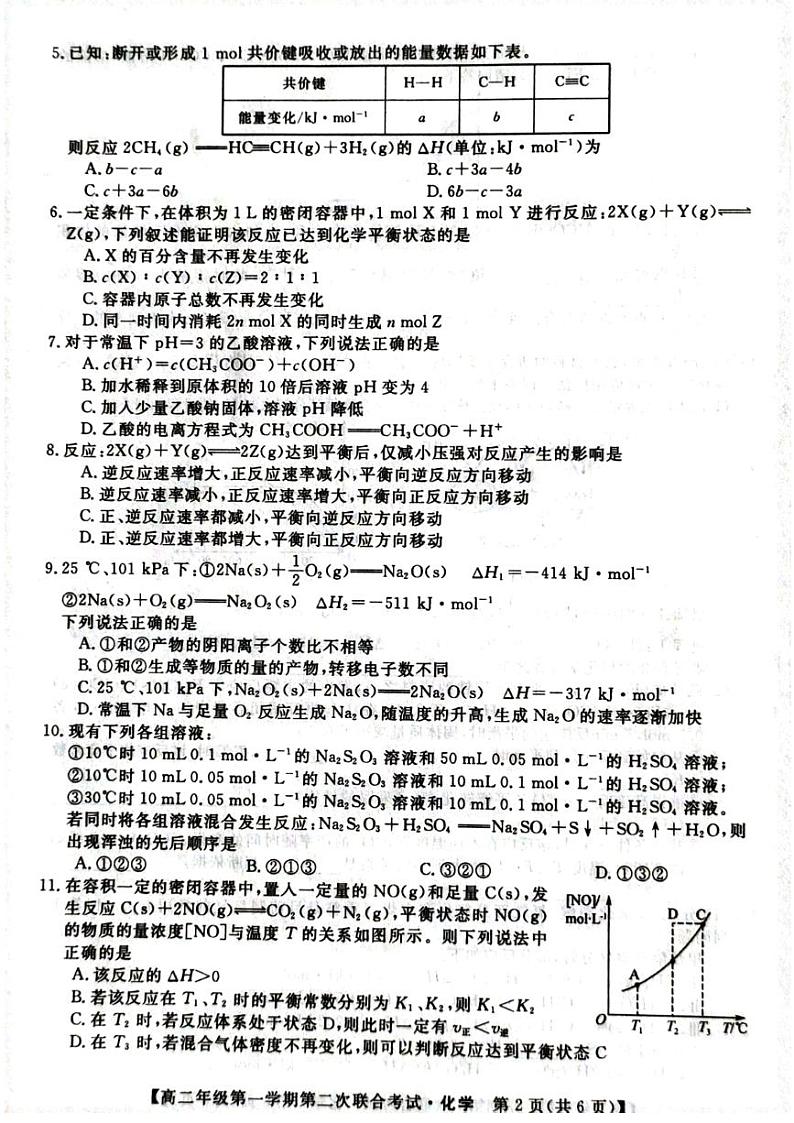 5. 已知:断开或形成 1 mol 共价键吸收或放出的能量数据如下表。
共价键 H—H C—H C≡C
能量变化/kJ·mol⁻¹ a b c
则反应 2CH₄(g)══HC≡CH(g)+3H₂(g)的 ΔH(单位:kJ·mol⁻¹)为
A. b−c−a B. c+3a−4b
C. c+3a−6b D. 6b−c−3a
6. 一定条件下,在体积为 1 L 的密闭容器中,1 mol X 和 1 mol Y 进行反应:2X(g)+Y(g)⇌
Z(g),下列叙述能证明该反应已达到化学平衡状态的是
A. X 的百分含量不再发生变化
B. c(X)∶c(Y)∶c(Z)=2∶1∶1
C. 容器内原子总数不再发生变化
D. 同一时间内消耗 2n mol X 的同时生成 n mol Z
7. 对于常温下 pH=3 的乙酸溶液,下列说法正确的是
A. c(H⁺)=c(CH₃COO⁻)+c(OH⁻)
B. 加水稀释到原体积的 10 倍后溶液 pH 变为 4
C. 加入少量乙酸钠固体,溶液 pH 降低
D. 乙酸的电离方程式为 CH₃COOH══CH₃COO⁻+H⁺
8. 反应:2X(g)+Y(g)⇌2Z(g)达到平衡后,仅减小压强对反应产生的影响是
A. 逆反应速率增大,正反应速率减小,平衡向逆反应方向移动
B. 逆反应速率减小,正反应速率增大,平衡向正反应方向移动
C. 正、逆反应速率都减小,平衡向逆反应方向移动
D. 正、逆反应速率都增大,平衡向正反应方向移动
9. 25 ℃、101 kPa 下:①2Na(s)+1/2O₂(g)══Na₂O(s) ΔH₁=−414 kJ·mol⁻¹
②2Na(s)+O₂(g)══Na₂O₂(s) ΔH₂=−511 kJ·mol⁻¹
下列说法正确的是
A. ①和②产物的阴阳离子个数比不相等
B. ①和②生成等物质的量的产物,转移电子数不同
C. 25 ℃、101 kPa 下,Na₂O₂(s)+2Na(s)══2Na₂O(s) ΔH=−317 kJ·mol⁻¹
D. 常温下 Na 与足量 O₂ 反应生成 Na₂O,随温度的升高,生成 Na₂O 的速率逐渐加快
10. 现有下列各组溶液:
①10℃时 10 mL 0.1 mol·L⁻¹的 Na₂S₂O₃ 溶液和 50 mL 0.05 mol·L⁻¹的 H₂SO₄ 溶液;
②10℃时 10 mL 0.05 mol·L⁻¹的 Na₂S₂O₃ 溶液和 10 mL 0.1 mol·L⁻¹的 H₂SO₄ 溶液;
③30℃时 10 mL 0.05 mol·L⁻¹的 Na₂S₂O₃ 溶液和 10 mL 0.1 mol·L⁻¹的 H₂SO₄ 溶液。
若同时将各组溶液混合发生反应:Na₂S₂O₃+H₂SO₄══Na₂SO₄+S↓+SO₂↑+H₂O,则
出现浑浊的先后顺序是
A. ①②③ B. ②①③ C. ③②① D. ①③②
11. 在容积一定的密闭容器中,置入一定量的 NO(g)和足量 C(s),发
生反应 C(s)+2NO(g)⇌CO₂(g)+N₂(g),平衡状态时 NO(g)
的物质的量浓度[NO]与温度 T 的关系如图所示。则下列说法中
正确的是
A. 该反应的 ΔH>0
B. 若该反应在 T₁、T₂ 时的平衡常数分别为 K₁、K₂,则 K₁<K₂
C. 在 T₂ 时,若反应体系处于状态 D,则此时一定有 v正<v逆
D. 在 T₃ 时,若混合气体密度不再变化,则可以判断反应达到平衡状态 C
[NO]/
mol·L⁻¹
D C
A
O T₁ T₂ T₃ T/℃
【高二年级第一学期第二次联合考试·化学 第 2 页(共 6 页)】